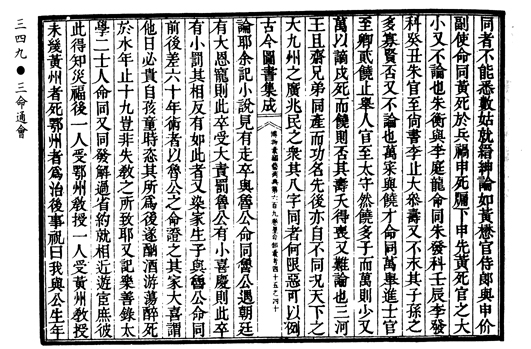 同者不能悉數姑就縉紳論如黃懋官侍郎與申价
副使命同黃死於兵禍申死牖下申先黃死官之大
小又不論也朱衡與李庭龍命同朱發科壬辰李發
科癸丑朱官至尚書李止大叅壽又不永其子孫之
多寡賢否又不論也萬寀與饒才命同萬舉進士官
至卿貳饒止舉人官至太守然饒多子而萬則少又
萬以謫戍死而饒則否其壽夭得喪又難論也三河
王且齋兄弟同產而功名先後亦自不同況天下之
大九州之廣兆民之衆其八字同者何限惡可以例
古今圖書集成
博物彙編藝術典第六百九卷星命部彙考四十五之四十
論耶余記小說見有走卒與魯公命同魯公遇朝廷
有大恩寵則此卒受大責罰魯公有小喜慶則此卒
有小罰其相反有如此者又染家生子與魯公命同
前後差六十年術者以魯公之命證之其家大喜謂
他日必貴自孩童時恣其所為後遂酗酒游蕩醉死
於水年止十九豈非失教之所致耶又記樂善錄太
學二士人命同又同發解過省約就相近遊宦庶彼
此得知災福後一人受鄂州教授一人受黃州教授
未幾黃州者死鄂州者為治後事祝曰我與公生年
三四九●三命通會